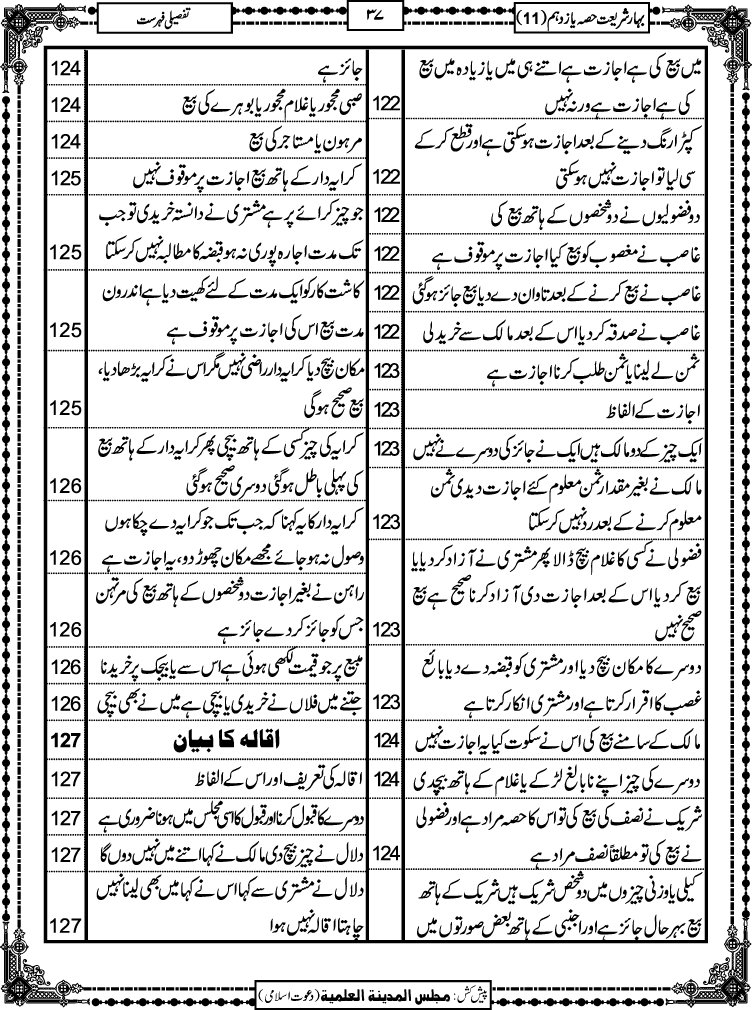 بہارِ شریعت حصہ یازدہم (11)
۳۷
تفصیلی فہرست
میں بیع کی ہے اجازت ہے اتنے ہی میں یا زیادہ میں بیع
کی ہے اجازت ہے ورنہ نہیں 122
کپڑا رنگ دینے کے بعد اجازت ہوسکتی ہے اور قطع کرکے
سی لیا تو اجازت نہیں ہوسکتی 122
دو فضولیوں نے دو شخصوں کے ہاتھ بیع کی 122
غاصب نے مغصوب کو بیع کیا اجازت پر موقوف ہے 122
غاصب نے بیع کرنے کے بعد تاوان دے دیا بیع جائز ہوگئی 122
غاصب نے صدقہ کردیا اس کے بعد مالک سے خرید لی 122
ثمن لے لینا یا ثمن طلب کرنا اجازت ہے 123
اجازت کے الفاظ 123
ایک چیز کے دو مالک ہیں ایک نے جائز کی دوسرے نے نہیں 123
مالک نے بغیر مقدار ثمن معلوم کئے اجازت دیدی ثمن
معلوم کرنے کے بعد رد نہیں کرسکتا 123
فضولی نے کسی کا غلام بیچ ڈالا پھر مشتری نے آزاد کردیا یا
بیع کردیا اس کے بعد اجازت دی آزاد کرنا صحیح ہے بیع
صحیح نہیں 123
دوسرے کا مکان بیچ دیا اور مشتری کو قبضہ دے دیا بائع
غصب کا اقرار کرتا ہے اور مشتری انکار کرتا ہے 123
مالک کے سامنے بیع کی اس نے سکوت کیا یہ اجازت نہیں 124
دوسرے کی چیز اپنے نابالغ لڑکے یا غلام کے ہاتھ بیچدی 124
شریک نے نصف کی بیع کی تو اس کا حصہ مراد ہے اور فضولی
نے بیع کی تو مطلقاً نصف مراد ہے 124
کیلی یا وزنی چیزوں میں دو شخص شریک ہیں شریک کے ہاتھ
بیع بہرحال جائز ہے اور اجنبی کے ہاتھ بعض صورتوں میں
جائز ہے 124
صبی محجور یا غلام محجور یا بوہرے کی بیع 124
مرہون یا مستاجر کی بیع 124
کرایہ دار کے ہاتھ بیع اجازت پر موقوف نہیں 125
جو چیز کرائے پر ہے مشتری نے دانستہ خریدی تو جب
تک مدت اجارہ پوری نہ ہو قبضہ کا مطالبہ نہیں کرسکتا 125
کاشت کار کو ایک مدت کے لئے کھیت دیا ہے اندرون
مدت بیع اس کی اجازت پر موقوف ہے 125
مکان بیچ دیا کرایہ دار راضی نہیں مگر اس نے کرایہ بڑھا دیا،
بیع صحیح ہوگی 125
کرایہ کی چیز کسی کے ہاتھ بیچی پھر کرایہ دار کے ہاتھ بیع
کی پہلی باطل ہوگئی دوسری صحیح ہوگئی 126
کرایہ دار کا یہ کہنا کہ جب تک جو کرایہ دے چکا ہوں
وصول نہ ہو جائے مجھے مکان چھوڑ دو، یہ اجازت ہے 126
راہن نے بغیر اجازت دو شخصوں کے ہاتھ بیع کی مرتہن
جس کو جائز کردے جائز ہے 126
مبیع پر جو قیمت لکھی ہوئی ہے اس سے یا بیجک پر خریدنا 126
جتنے میں فلاں نے خریدی یا بیچی ہے میں نے بھی بیچی 126
اقالہ کا بیان 127
اقالہ کی تعریف اور اس کے الفاظ 127
دوسرے کا قبول کرنا اور قبول کا اسی مجلس میں ہونا ضروری ہے 127
دلال نے چیز بیچ دی مالک نے کہا اتنے میں نہیں دوں گا 127
دلال نے مشتری سے کہا اس نے کہا میں بھی لینا نہیں
چاہتا اقالہ نہیں ہوا 127
پیش کش: مجلس المدینة العلمیة (دعوت اسلامی)